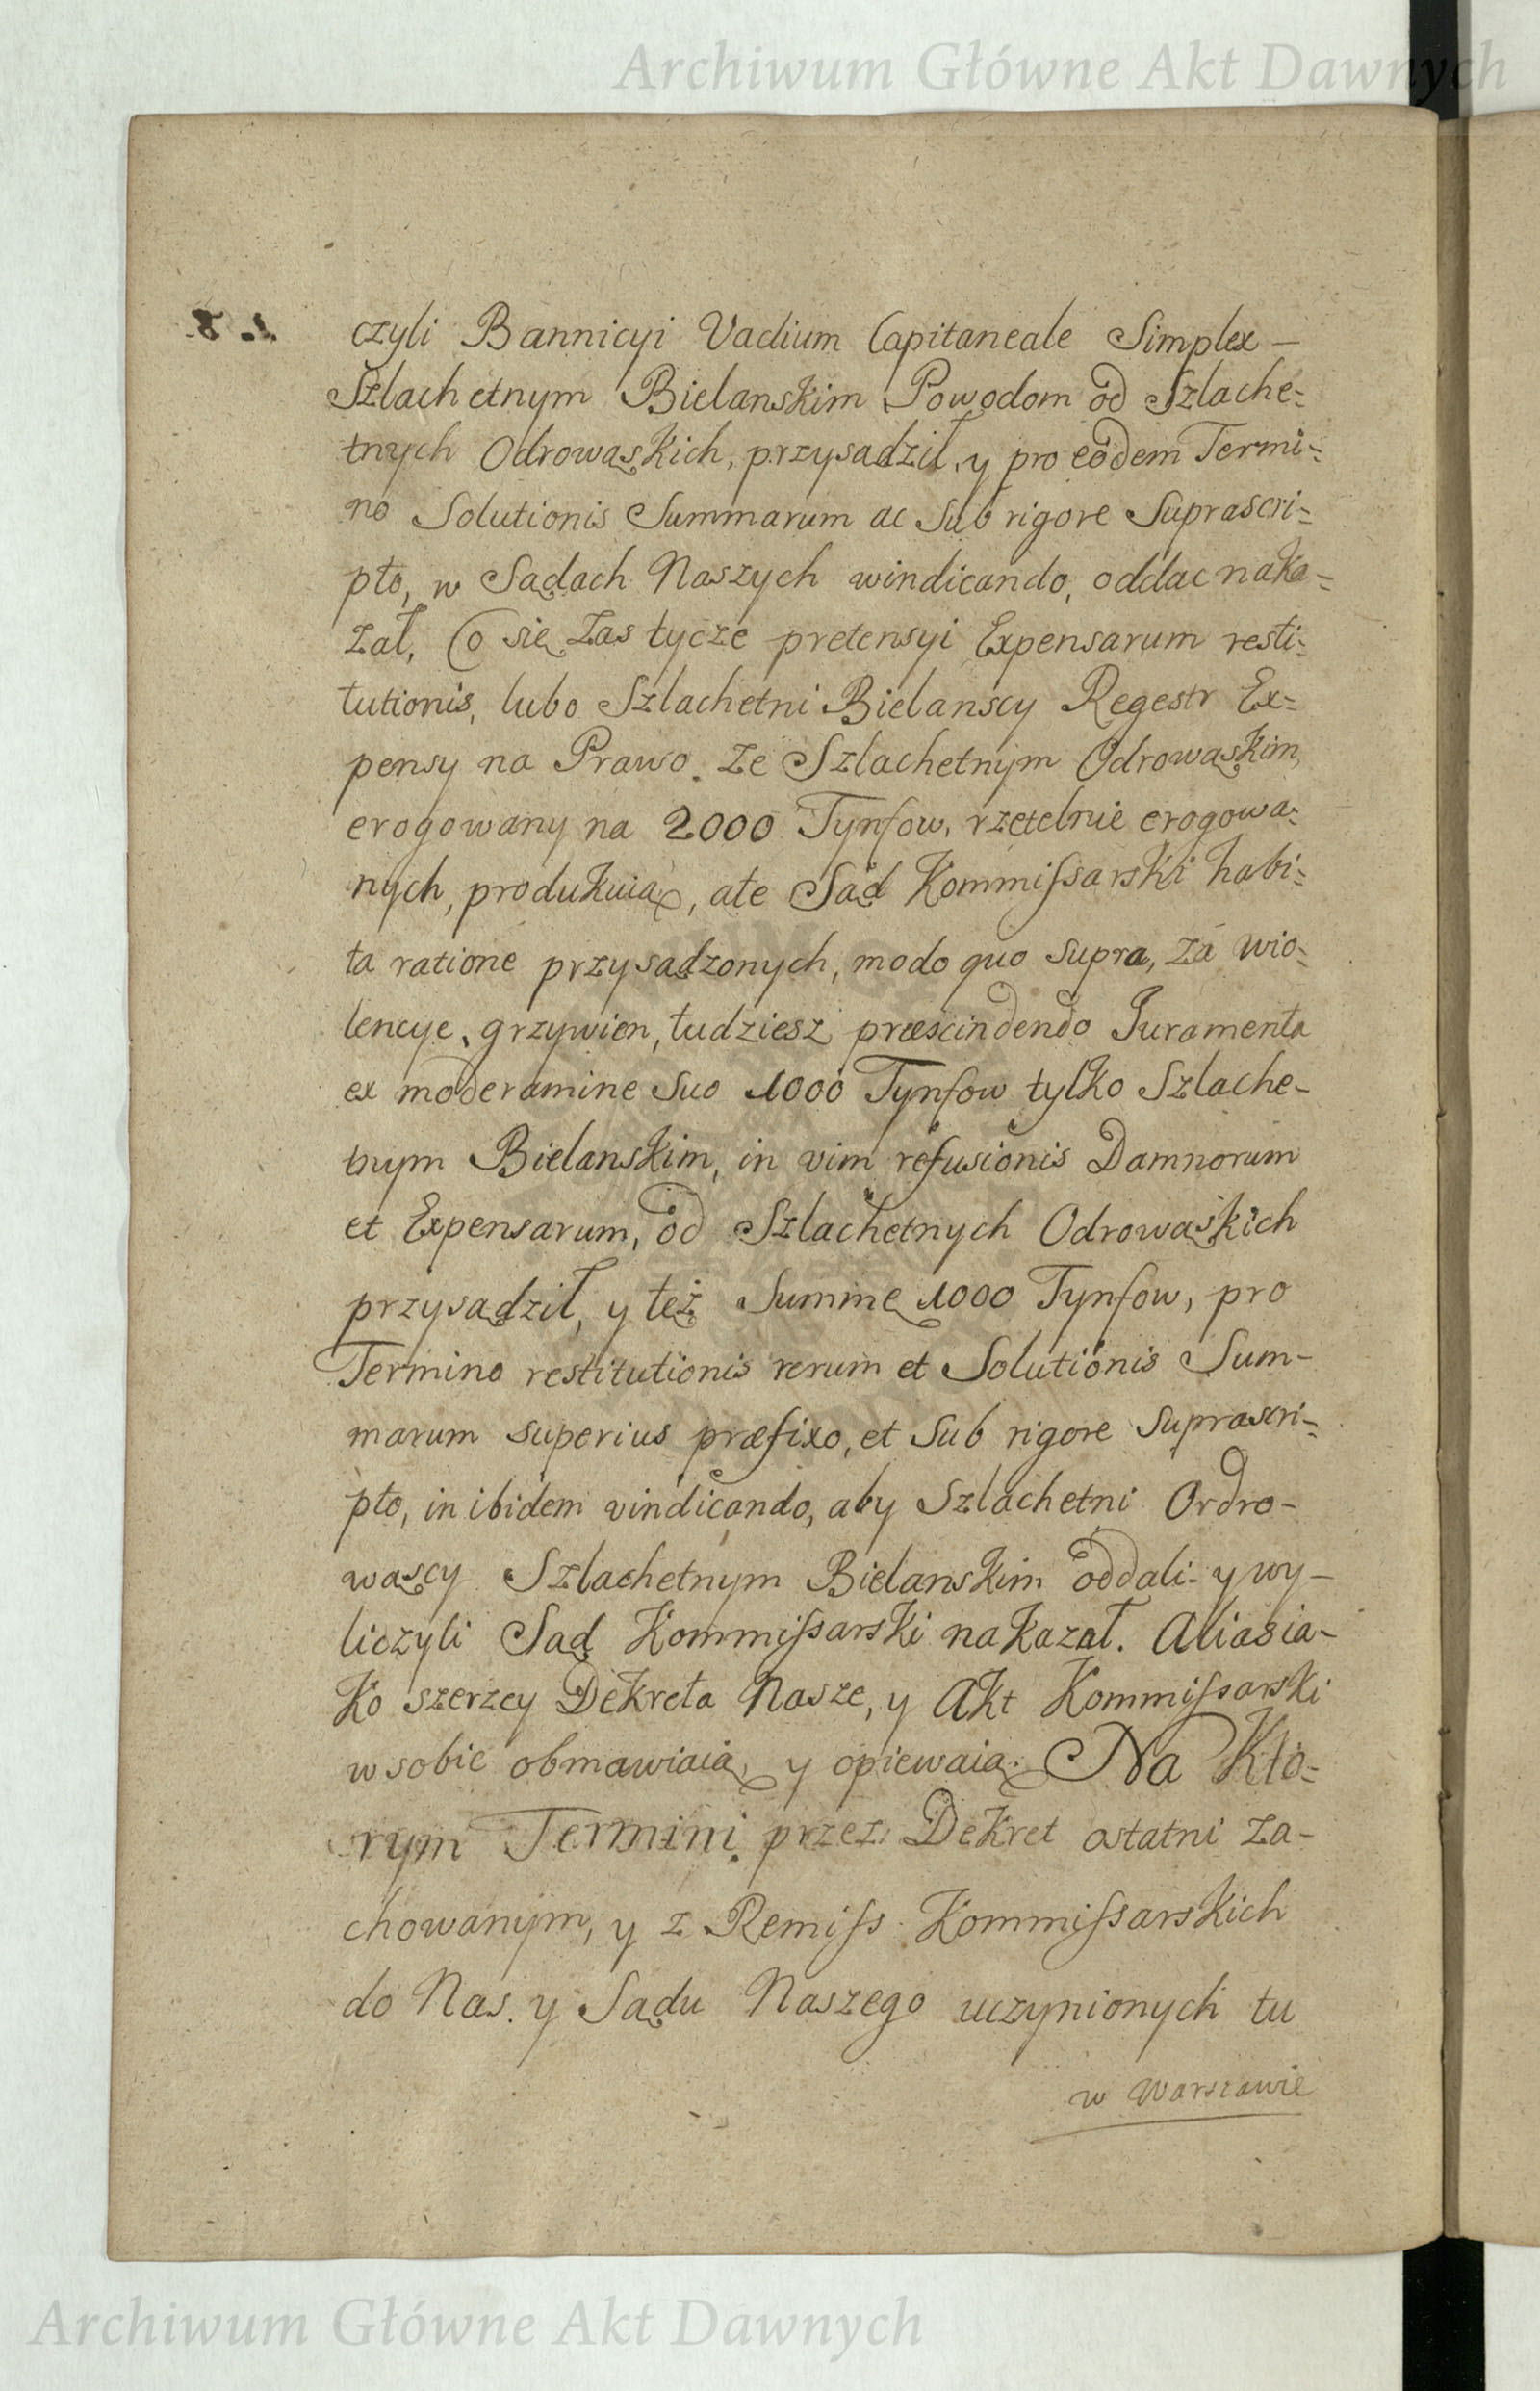 Archiwum Główne Akt Dawnych
czyli Bannicyi Vadium Capitaneale Simplex –
Szlachetnym Bielanskim Powodom od Szlache=
tnych Odrowąskich, przysądził, y pro eodem Termi=
no Solutionis Summarum ac Sub rigore Suprascri=
pto, w Sądach Naszych windicando, oddac naka=
zał, Co się zas tycze pretensyi Expensarum resti=
tutionis, lubo Szlachetni Bielanscy Regestr Ex=
pensy na Prawo. ze Szlachetnym Odrowąskim,
erogowany na 2000 Tynfow, rzetelnie erogowa=
nych, produkuią, ale Sąd Kommissarski habi=
ta ratione przysądzonych, modo quo supra, za wio=
lencye, grzywien, tudziesz præscindendo Juramenta
ex moderamine Suo 1000 Tynfow tylko Szlache-
tnym Bielanskim, in vim refusionis Damnorum
et Expensarum, od Szlachetnych Odrowąskich
przysądził, y też Summę 1000 Tynfow, pro
Termino restitutionis rerum et Solutionis Sum-
marum superius præfixo, et Sub rigore suprascri=
pto, in ibidem vindicando, aby Szlachetni Ordro-
wąscy Szlachetnym Bielanskim oddali y wy-
liczyli Sąd Kommissarski nakazał. Alias ia-
ko szerzey Dekreta Nasze, y Akt Kommissarski
w sobie obmawiaią, y opiewaią. Na Kto=
rym Termini. przez Dekret ostatni za-
chowanym, y z Remiss Kommissarskich
do Nas. y Sądu Naszego uczynionych tu
w Warszawie
Archiwum Główne Akt Dawnych